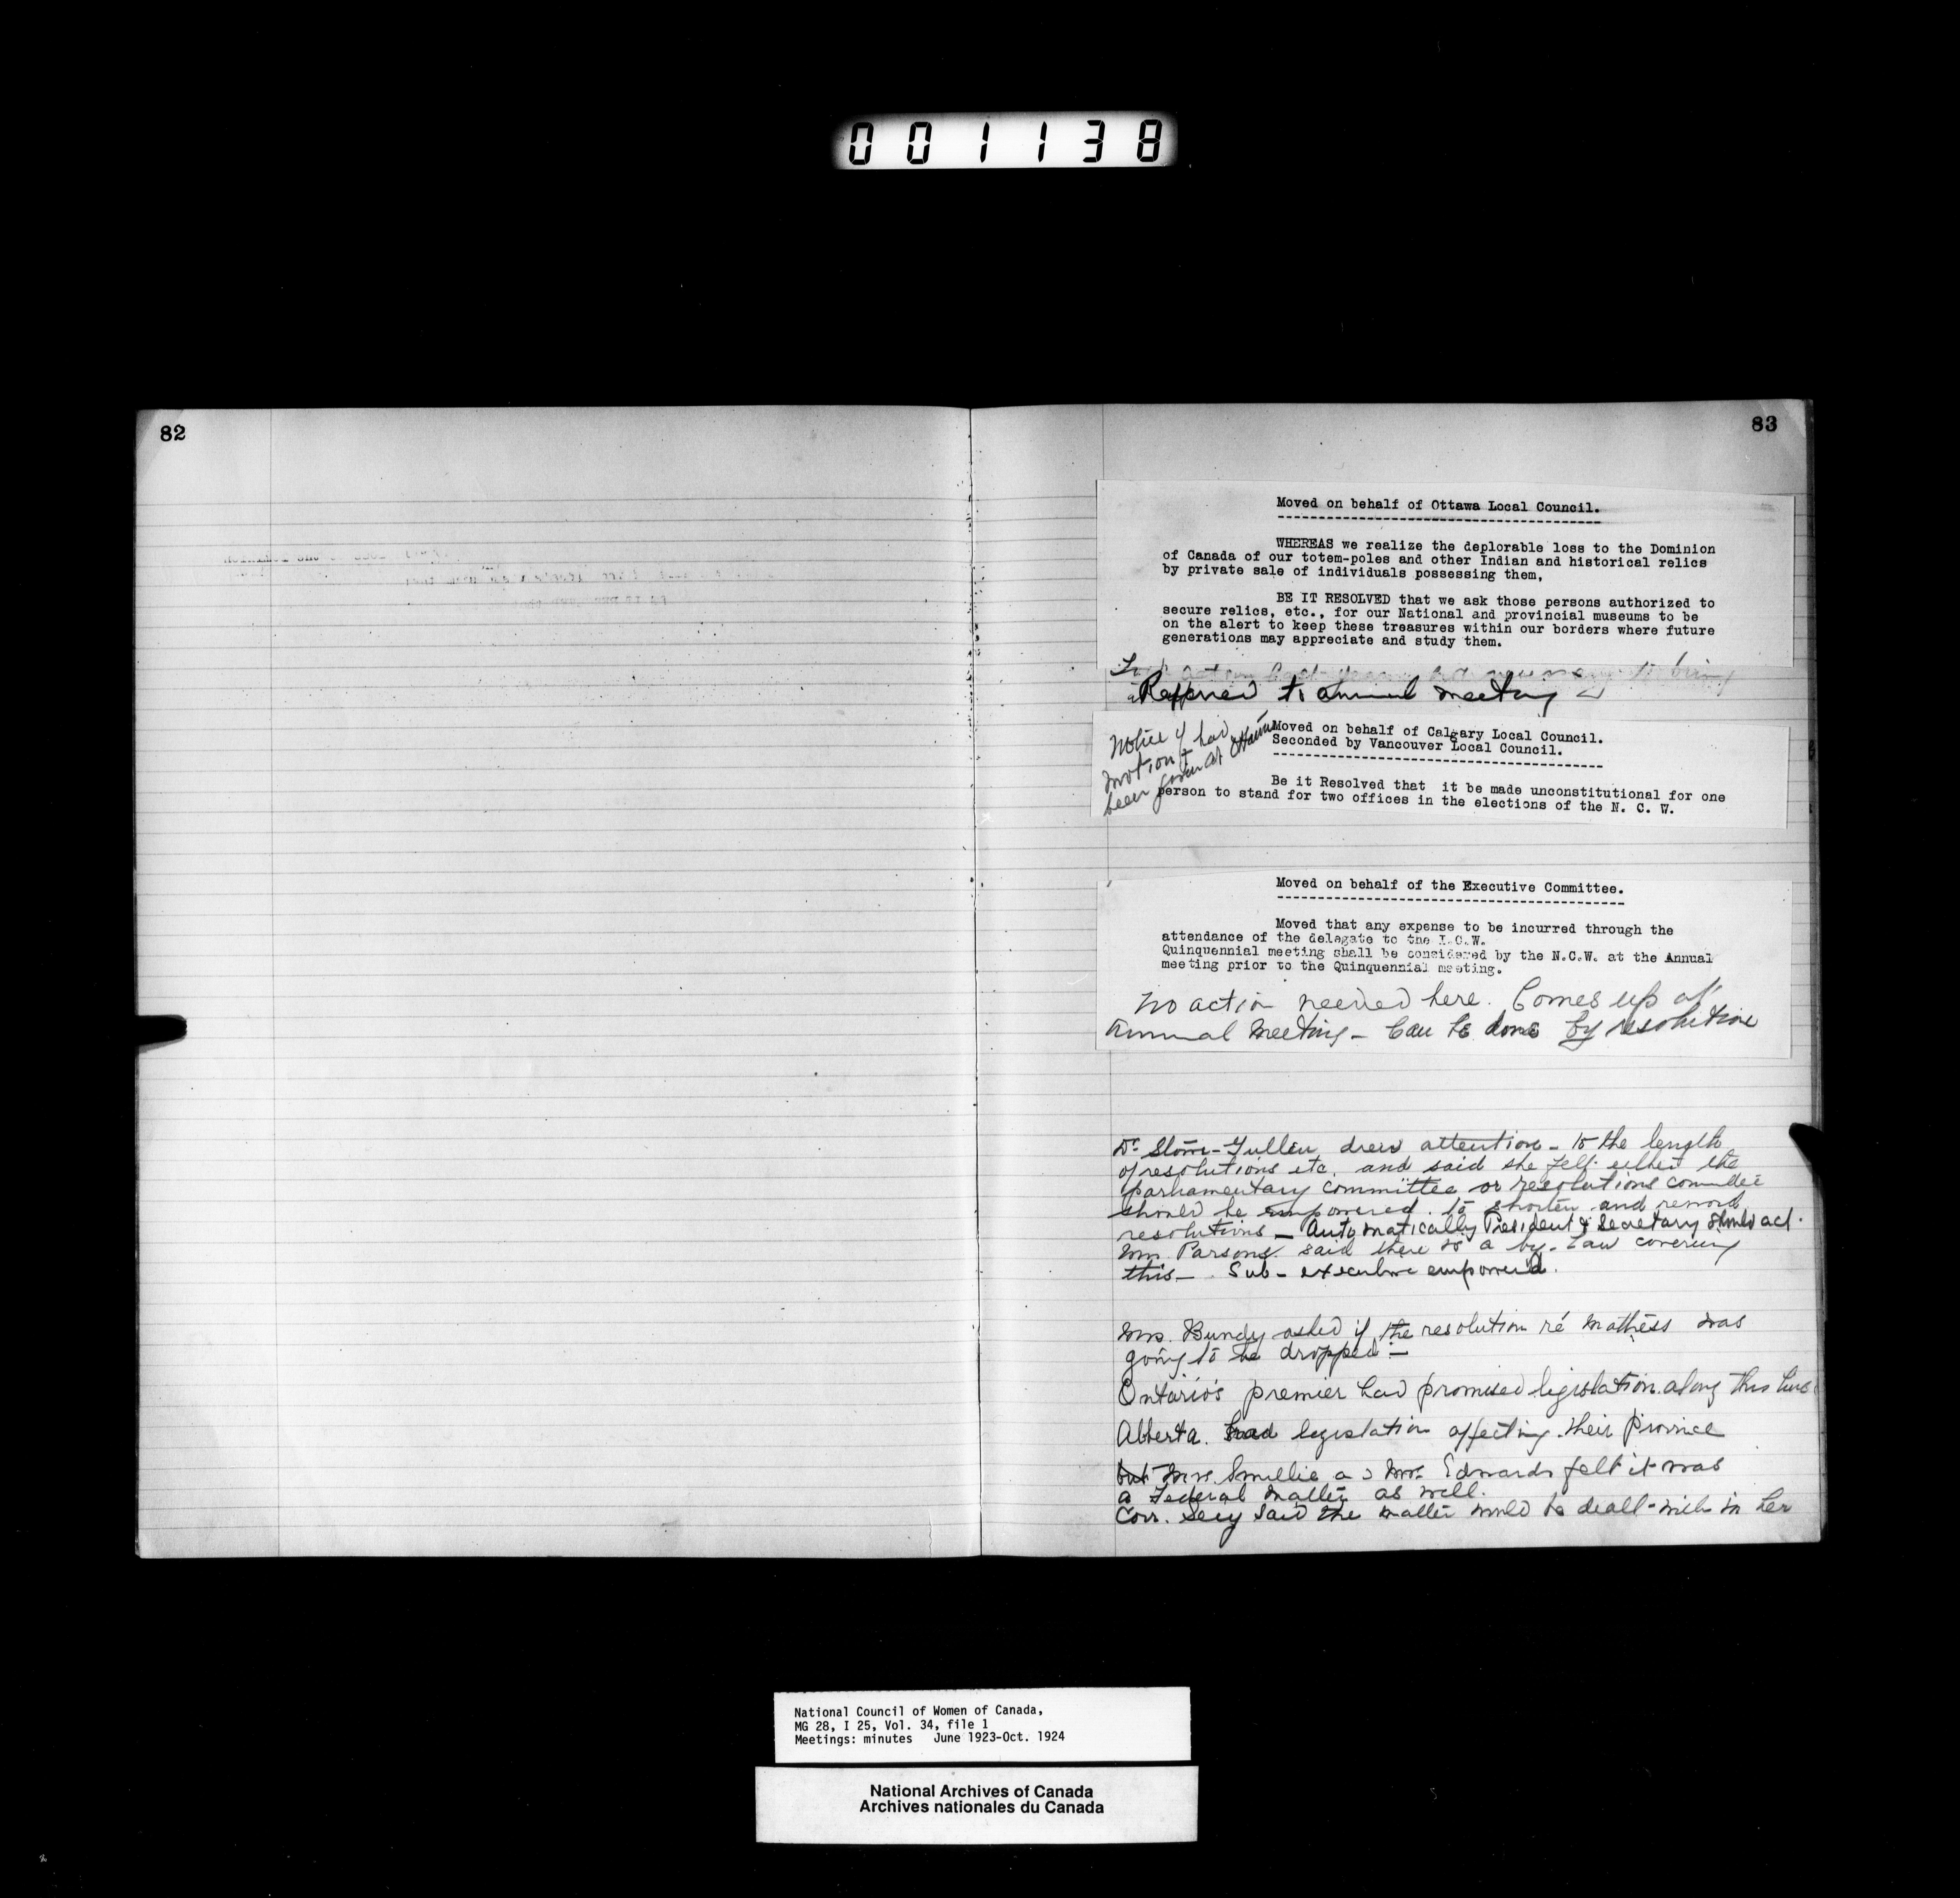 001138
82
83
Moved on behalf of Ottawa Local Council.
WHEREAS we realize the deplorable loss to the Dominion
of Canada of our totem-poles and other Indian and historical relics
by private sale of individuals possessing them,
BE IT RESOLVED that we ask those persons authorized to
secure relics, etc., for our National and provincial museums to be
on the alert to keep these treasures within our borders where future
generations may appreciate and study them.
Referred to annual meeting
Notice of had
motion
been given at Ottawa
Moved on behalf of Calgary Local Council.
Seconded by Vancouver Local Council.
Be it Resolved that it be made unconstitutional for one
person to stand for two offices in the elections of the N. C. W.
Moved on behalf of the Executive Committee.
Moved that any expense to be incurred through the
attendance of the delegate to the I.C.W.
Quinquennial meeting shall be considered by the N.C.W. at the Annual
meeting prior to the Quinquennial meeting.
No action needed here. Comes up at
Annual Meeting - Can be done by resolution
Dr. Stowe-Gullen drew attention - to the length
of resolutions etc. and said she felt either the
parliamentary committee or resolutions committee
should be empowered to shorten and reword
resolutions - Automatically President & Secretary should act.
Mrs. Parsons said there is a by-law covering
this - Sub-executive empowered.
Mrs. Bundy asked if the resolution re mattress was
going to be dropped -
Ontario's premier had promised legislation along this line
Alberta had legislation affecting their province
but Mrs. Smillie and Mrs. Edwards felt it was
a Federal matter as well.
Corr. Secy said the matter would be dealt with in her
National Council of Women of Canada,
MG 28, I 25, Vol. 34, file 1
Meetings: minutes June 1923-Oct. 1924
National Archives of Canada
Archives nationales du Canada